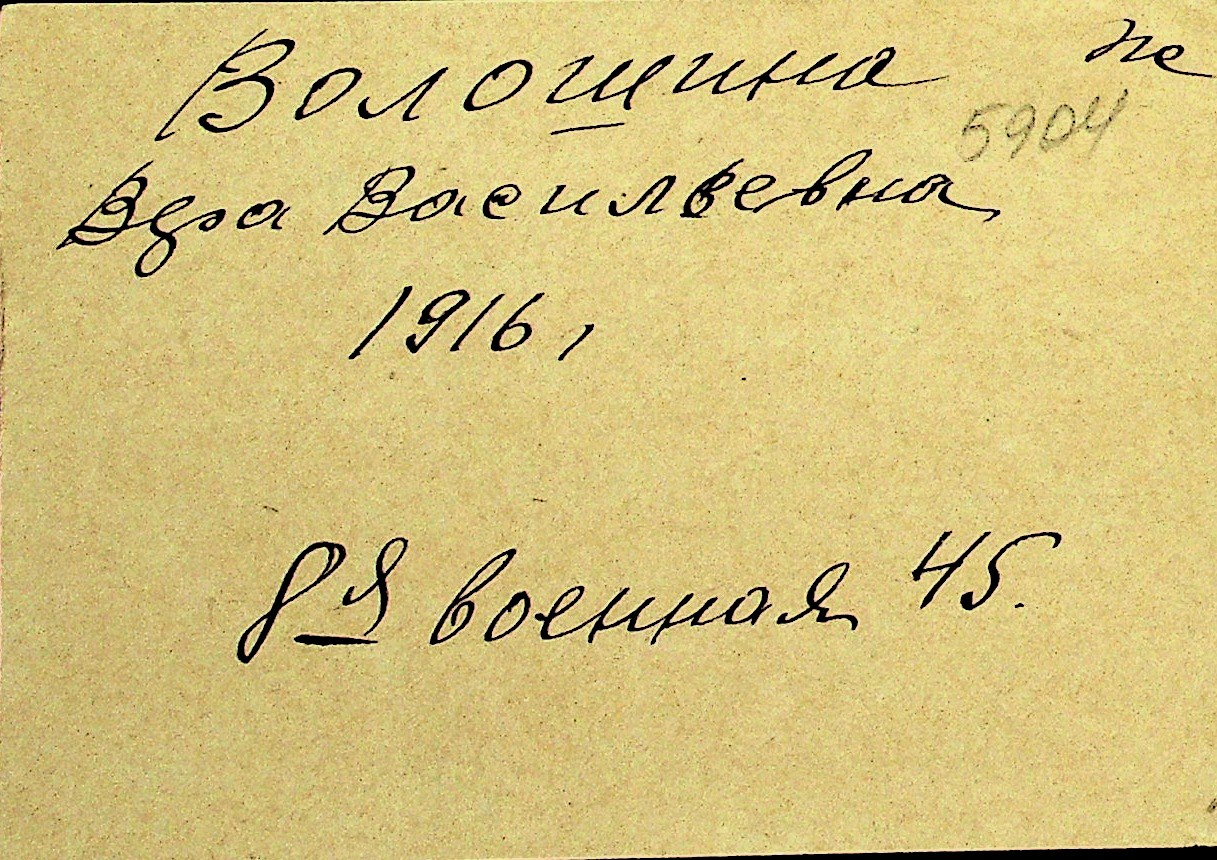 Волошина
5904
Вера Васильевна
1916 г
8я военная 45.